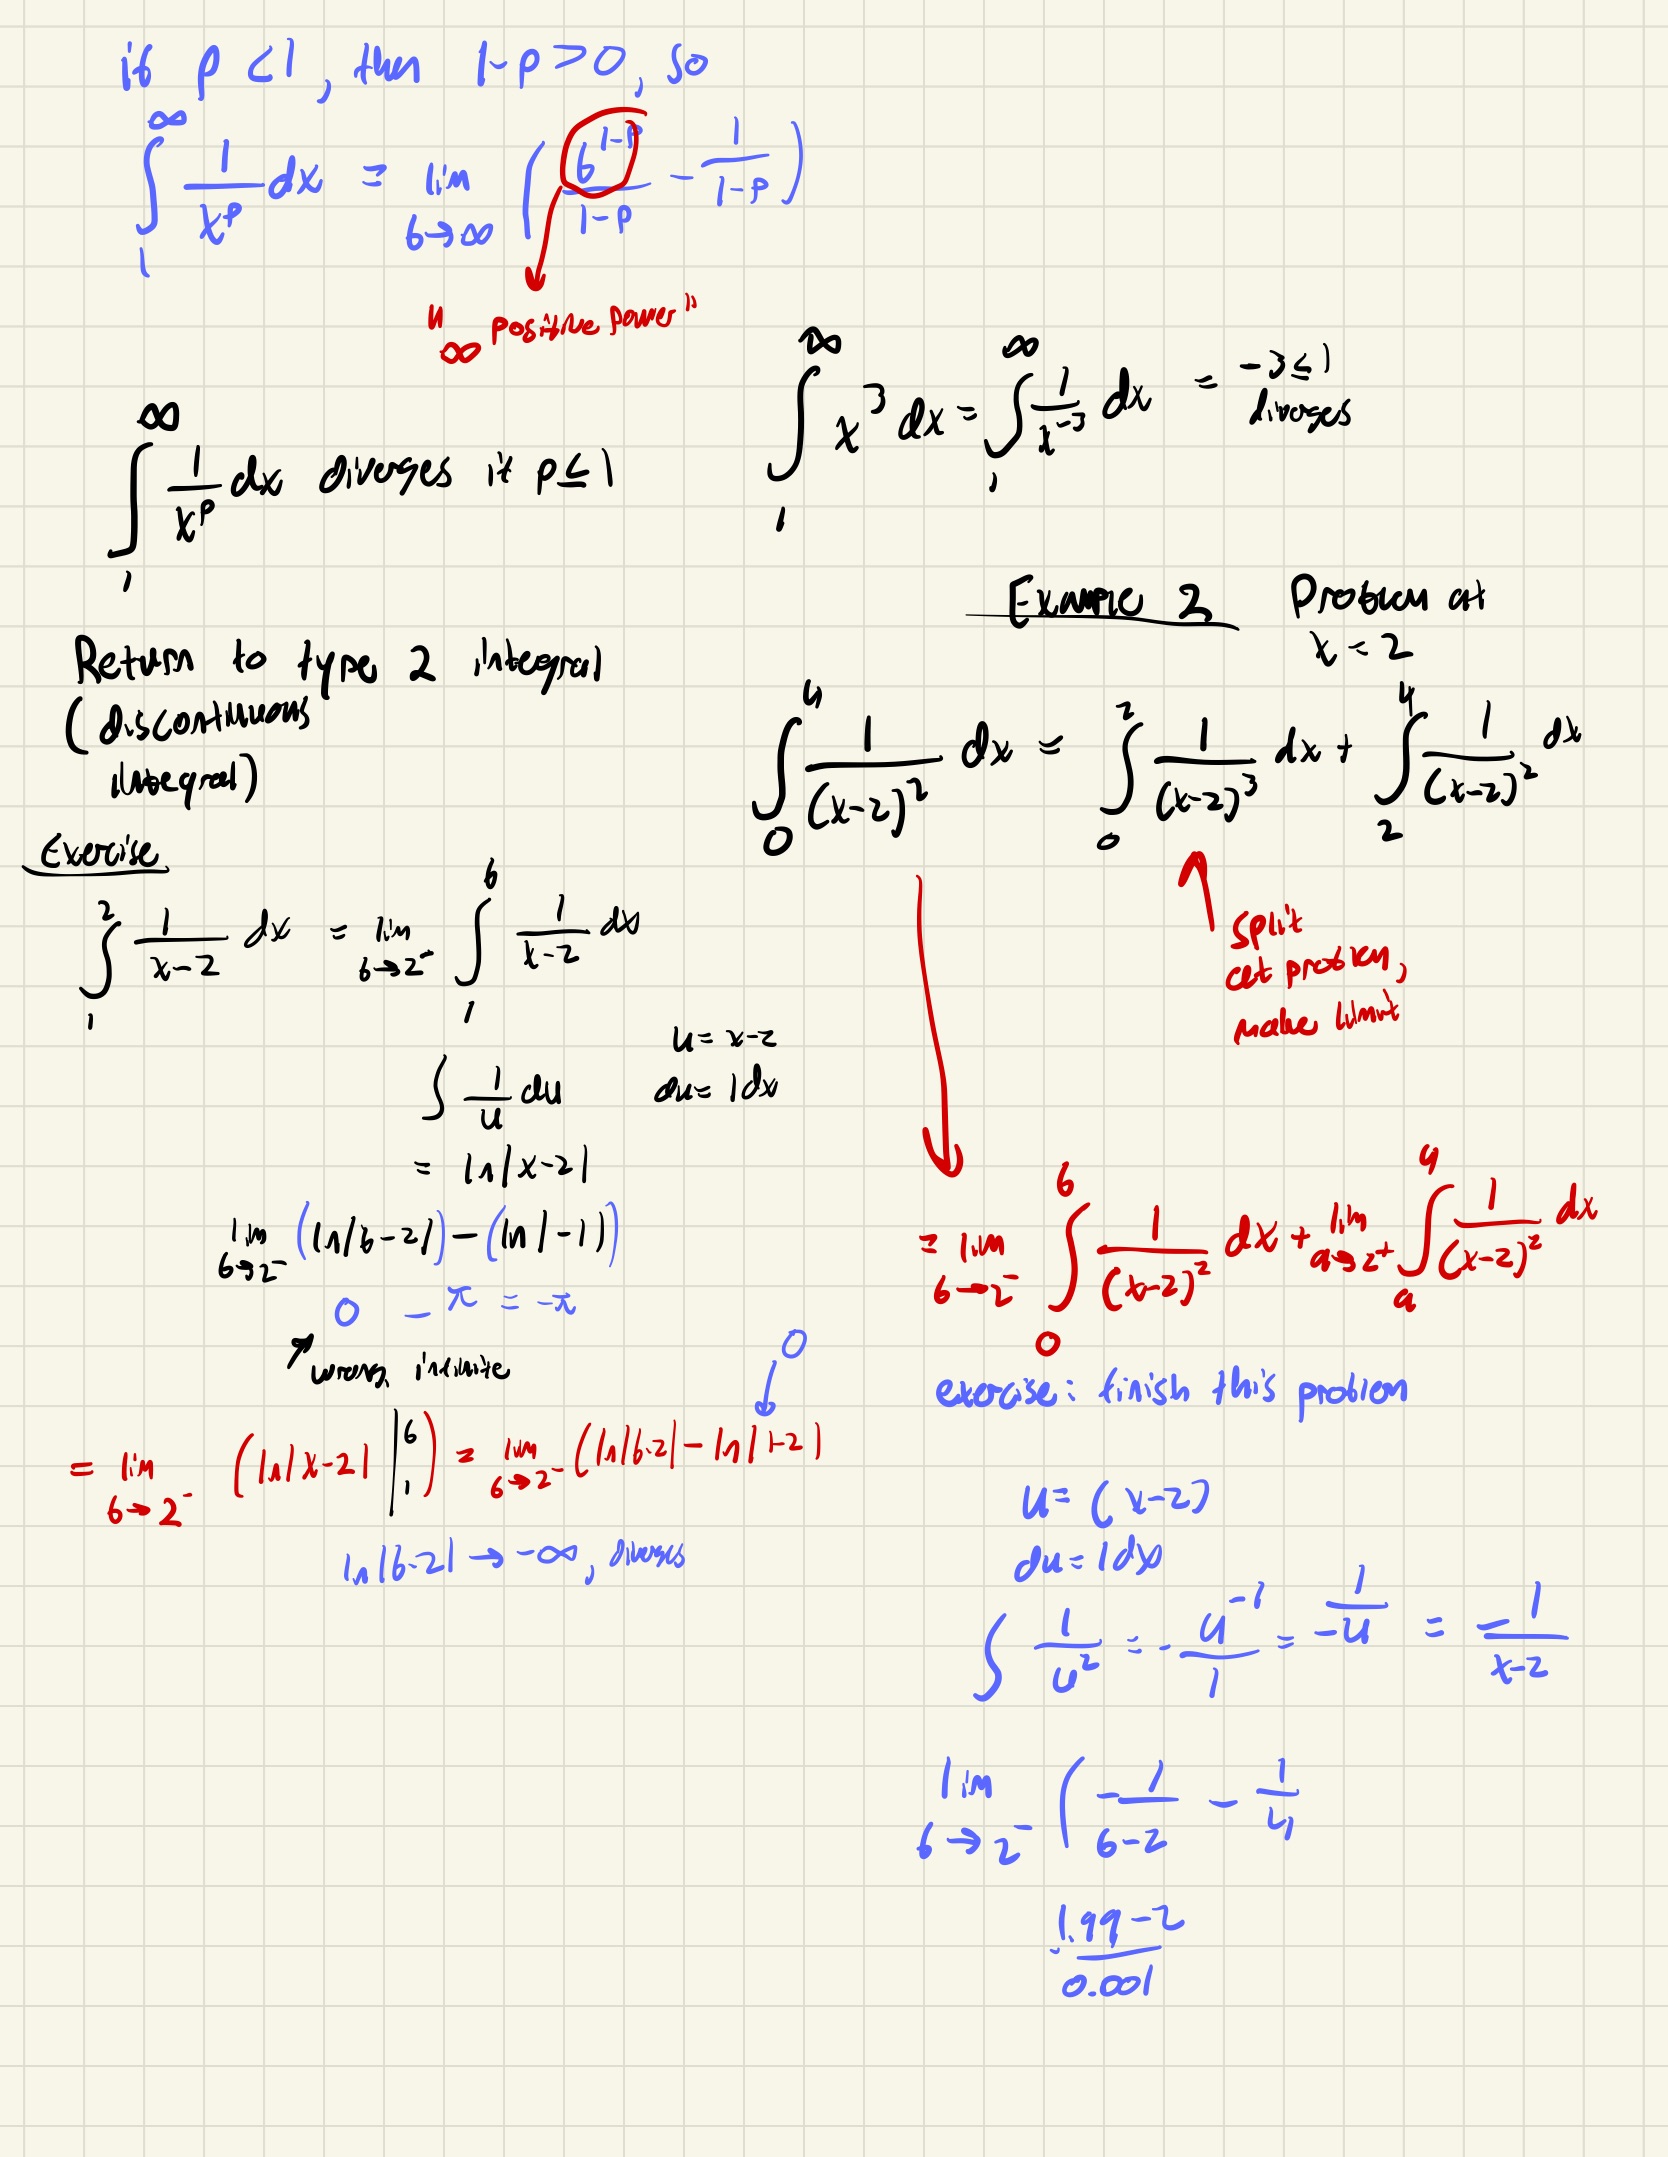 if p < 1, then 1-p > 0, so
∫_1^∞ 1/x^p dx = lim_{b→∞} ( b^{1-p}/(1-p) - 1/(1-p) )
"∞ positive power"
∫_1^∞ 1/x^p dx diverges if p ≤ 1
∫_1^∞ x^3 dx = ∫_1^∞ 1/x^{-3} dx = -3 ≤ 1
diverges
Return to type 2 integral
(discontinuous
integral)
Exercise
∫_1^2 1/(x-2) dx = lim_{b→2^-} ∫_1^b 1/(x-2) dx
u = x-2
du = 1dx
∫ 1/u du
= ln|x-2|
lim_{b→2^-} (ln|b-2|) - (ln|-1|)
0 - π = -π
wrong, infinite
0
= lim_{b→2^-} (ln|x-2| |_1^b) = lim_{b→2^-} (ln|b-2| - ln|1-2|)
ln|b-2| → -∞, diverges
Example 2 Problem at
x = 2
∫_0^4 1/(x-2)^2 dx = ∫_0^2 1/(x-2)^3 dx + ∫_2^4 1/(x-2)^2 dx
split
at problem,
make limit
= lim_{b→2^-} ∫_0^b 1/(x-2)^2 dx + lim_{a→2^+} ∫_a^4 1/(x-2)^2 dx
exercise: finish this problem
u = (x-2)
du = 1dx
∫ 1/u^2 = - u^{-1}/1 = 1/-u = -1/(x-2)
lim_{b→2^-} ( -1/(b-2) - 1/4
1.99-2
0.001